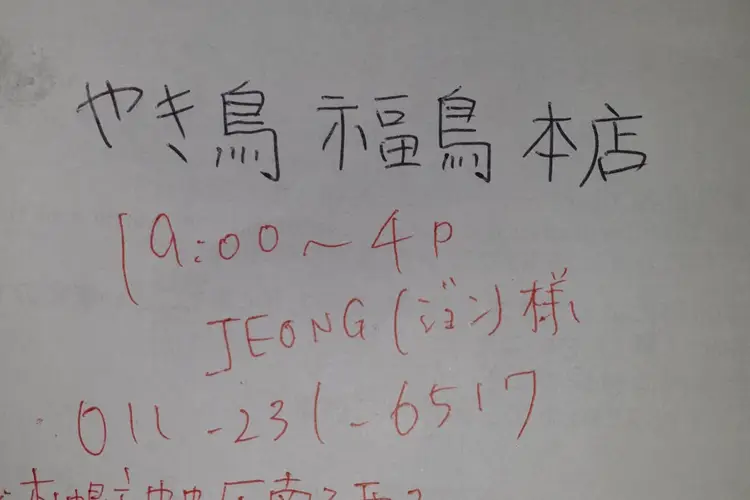 やき鳥 福鳥 本店
19:00～4P
JEONG(ジョン)様
011-231-6517